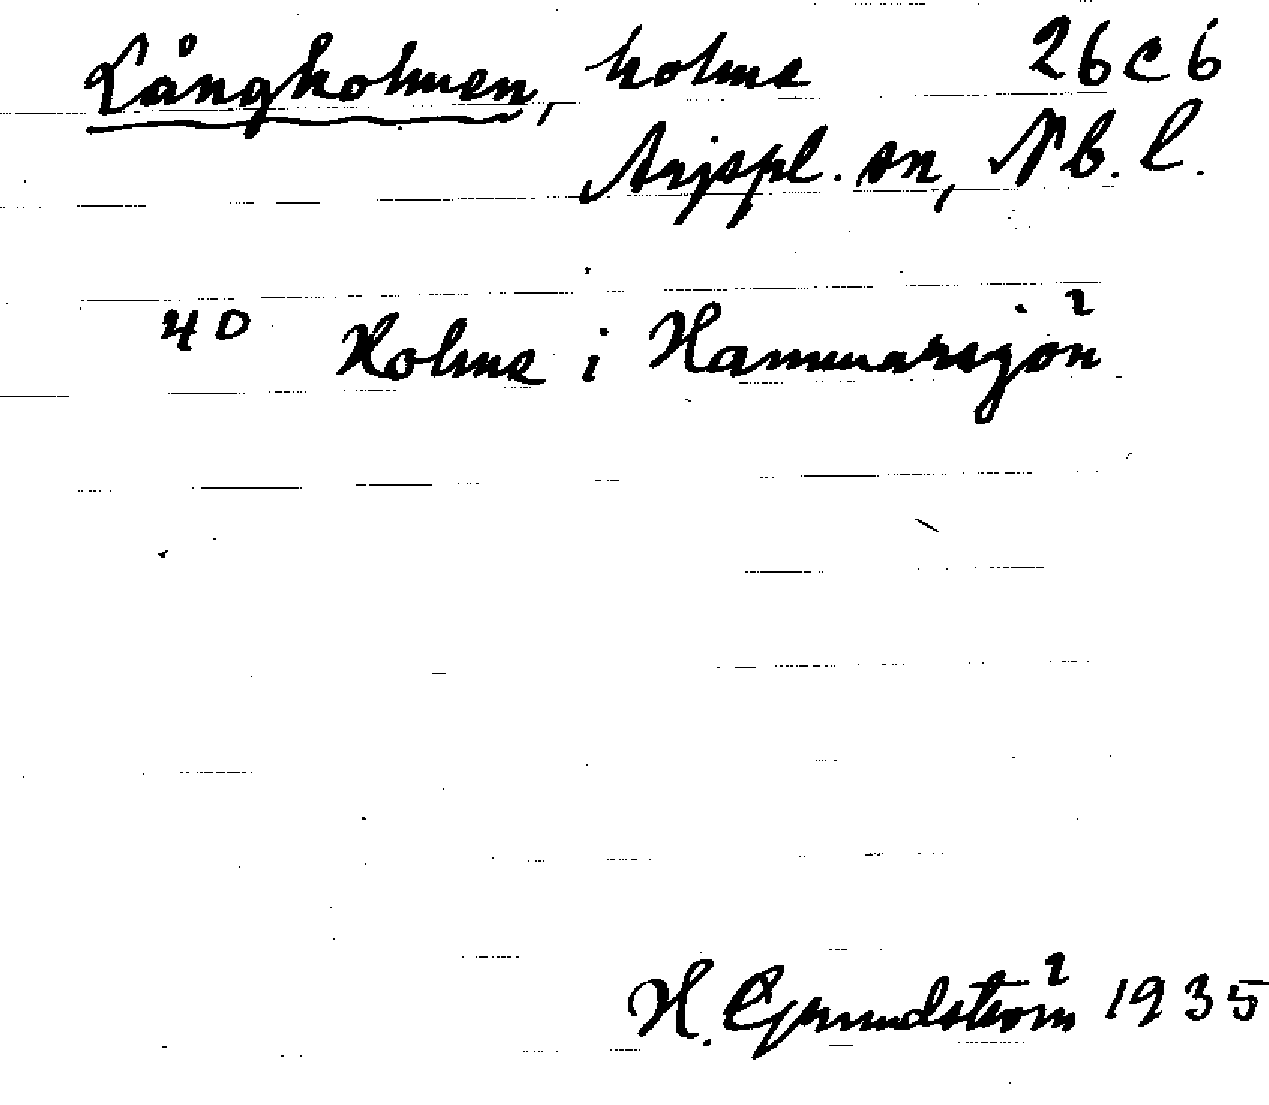 Långholmen, holme 26C6
Arjepl. sn, Nb. l.
4D Holme i Hammarsjön
H. Grundström 1935